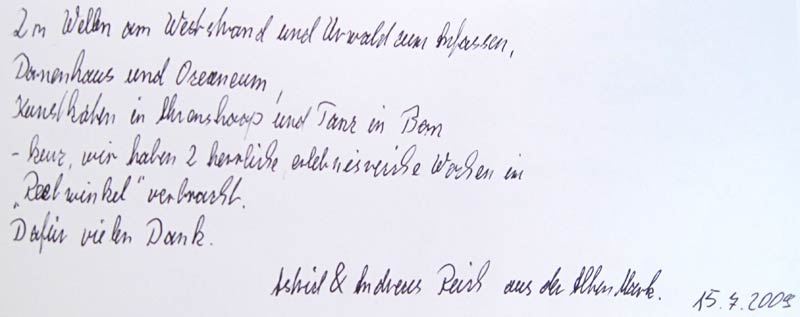 2m Wellen am Weststrand und Urwald zum Anfassen,
Darrenhaus und Ozeaneum,
Kunstkaten in Ahrenshoop und Tanz in Born
- kurz, wir haben 2 herrliche, erlebnisreiche Wochen in
„Reetwinkel“ verbracht.
Dafür vielen Dank.
Astrid & Andreas Reich aus der Alten Mark. 15.7.2009